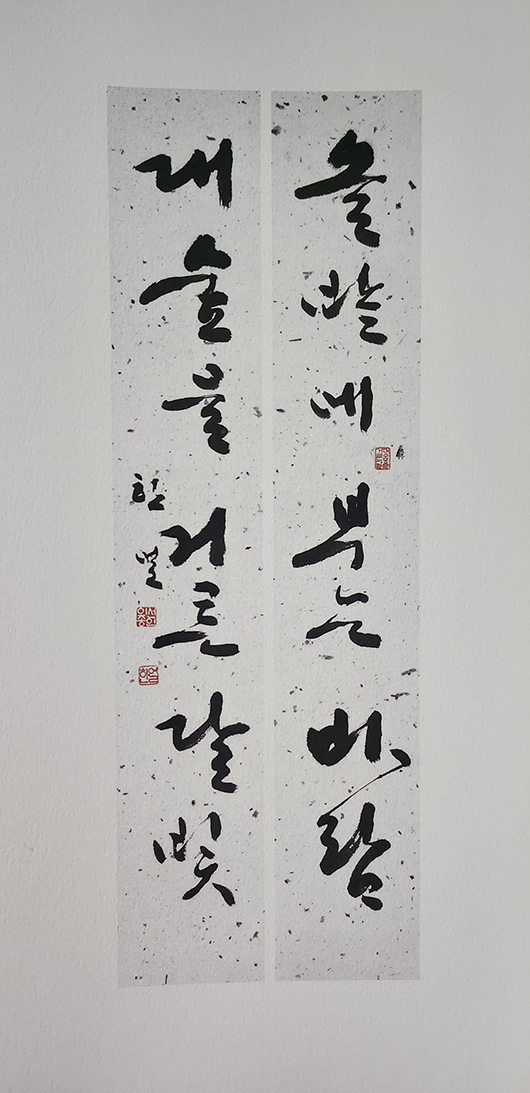 솔밭에 부는 바람
대숲을 거른 달빛